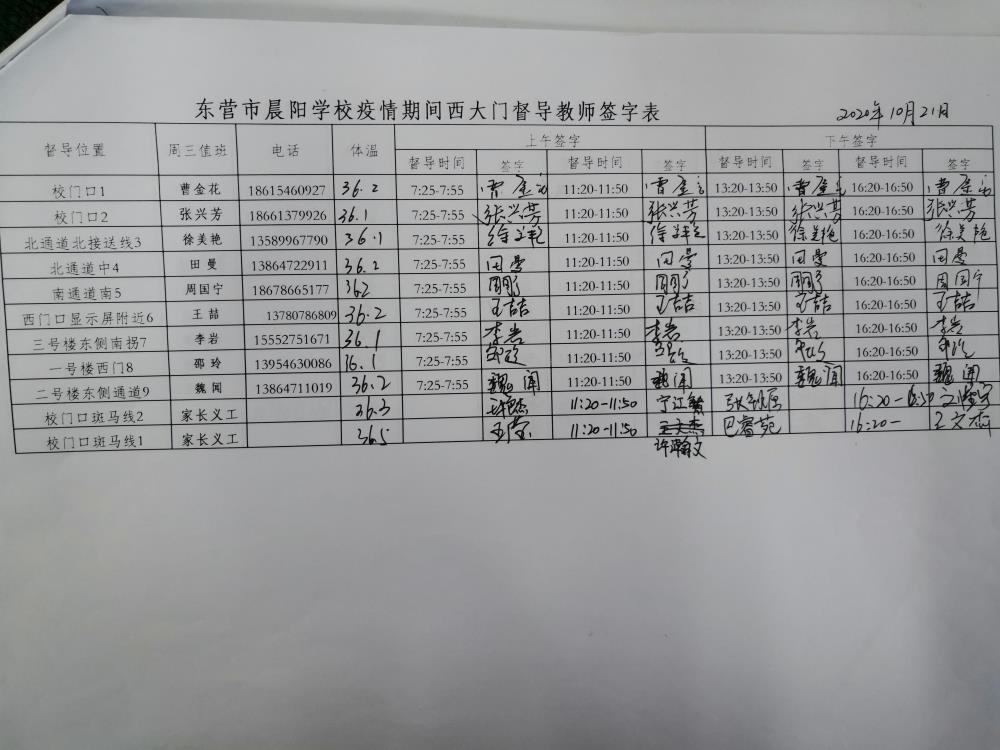 东营市晨阳学校疫情期间西大门督导教师签字表 2020年10月21日
督导位置 周三值班 电话 体温 上午签字 下午签字
督导时间 签字 督导时间 签字 督导时间 签字 督导时间 签字
校门口1 曹金花 18615460927 36.2 7:25-7:55 曹金花 11:20-11:50 曹金花 13:20-13:50 曹金花 16:20-16:50 曹金花
校门口2 张兴芳 18661379926 36.1 7:25-7:55 张兴芳 11:20-11:50 张兴芳 13:20-13:50 张兴芳 16:20-16:50 张兴芳
北通道北接送线3 徐美艳 13589967790 36.1 7:25-7:55 徐美艳 11:20-11:50 徐美艳 13:20-13:50 徐美艳 16:20-16:50 徐美艳
北通道中4 田曼 13864722911 36.2 7:25-7:55 田曼 11:20-11:50 田曼 13:20-13:50 田曼 16:20-16:50 田曼
南通道南5 周国宁 18678665177 362 7:25-7:55 周国宁 11:20-11:50 周国宁 13:20-13:50 周国宁 16:20-16:50 周国宁
西门口显示屏附近6 王喆 13780786809 36.2 7:25-7:55 王喆 11:20-11:50 王喆 13:20-13:50 王喆 16:20-16:50 王喆
三号楼东侧南拐7 李岩 15552751671 36.1 7:25-7:55 李岩 11:20-11:50 李岩 13:20-13:50 李岩 16:20-16:50 李岩
一号楼西门8 邵玲 13954630086 36.1 7:25-7:55 邵玲 11:20-11:50 邵玲 13:20-13:50 邵玲 16:20-16:50 邵玲
二号楼东侧通道9 魏闻 13864711019 36.2 7:25-7:55 魏闻 11:20-11:50 魏闻 13:20-13:50 魏闻 16:20-16:50 魏闻
校门口斑马线2 家长义工 36.3 11:20-11:50 16:20-16:50
校门口斑马线1 家长义工 36.5 王莹 11:20-11:50 王文杰 巴睿苑 16:20- 王文杰
许瀚文